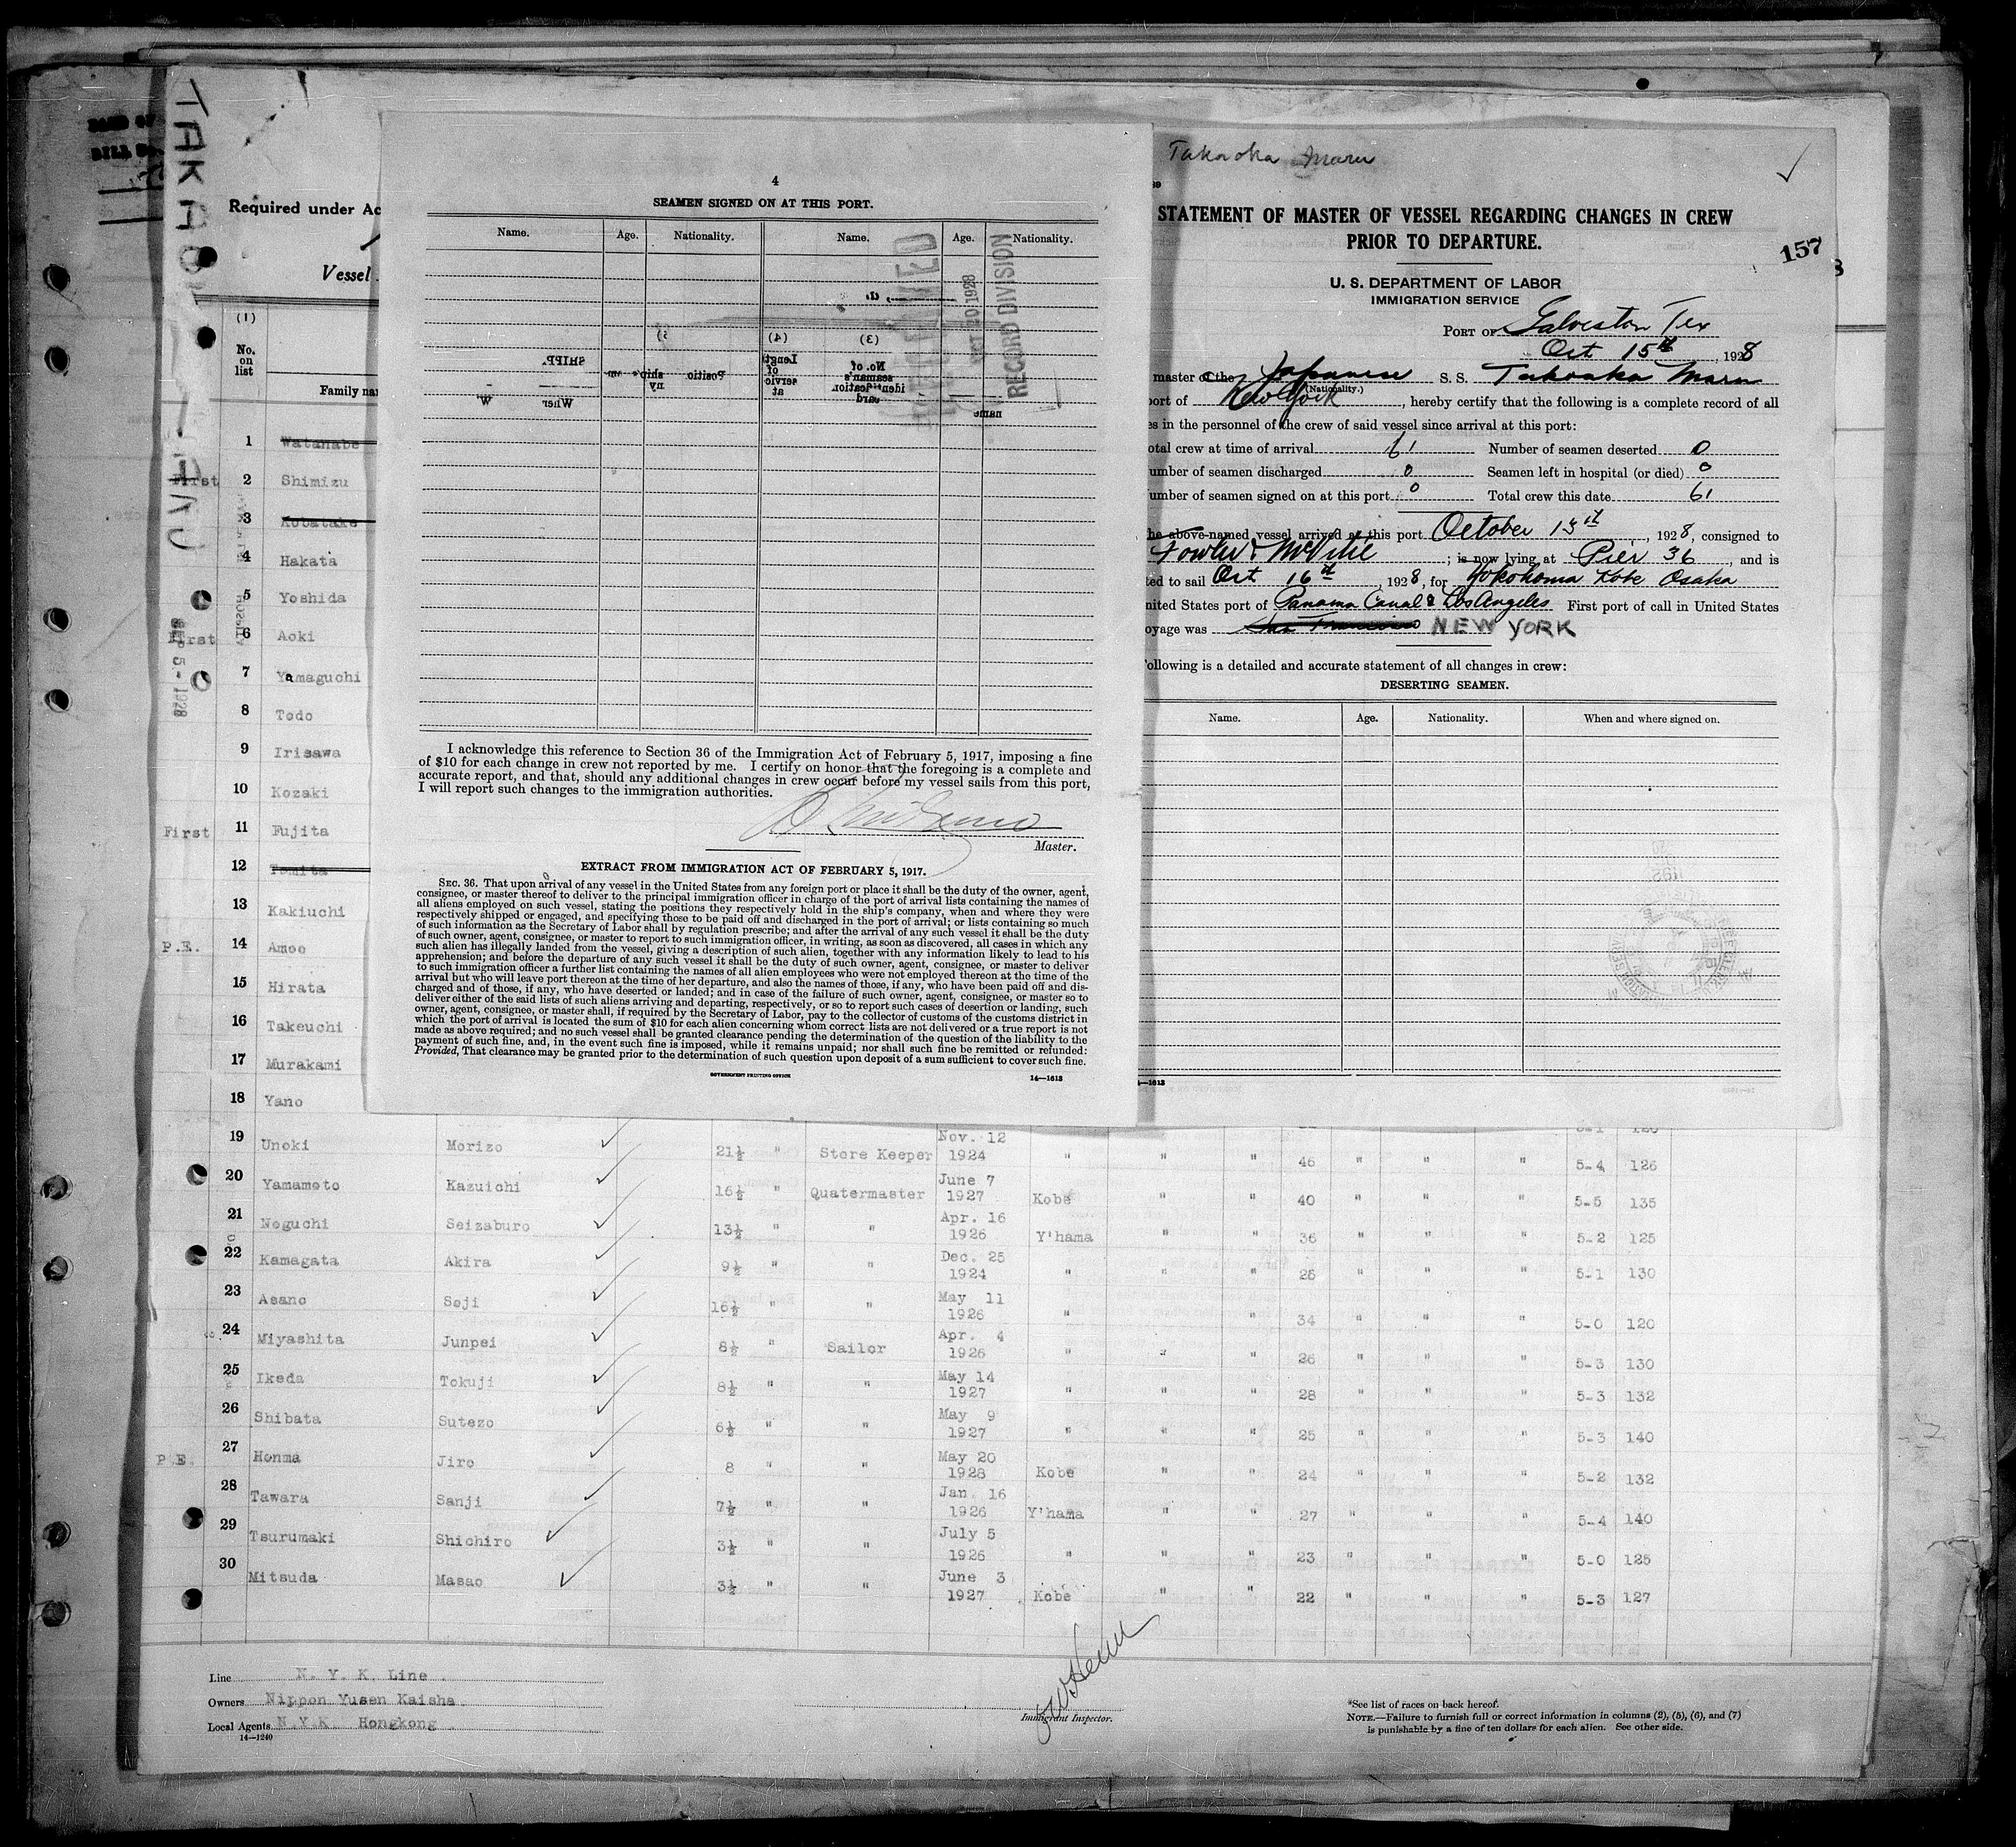 TAKAOKA MARU
Required under Ac
Vessel
(1)
No. on list
Family na
1 Watanabe
First 2 Shimizu
3 Kobatake
4 Hakata
5 Yoshida
First 6 Aoki
7 Yamaguchi
8 Todo
9 Irisawa
10 Kozaki
First 11 Fujita
12 Tomita
13 Kakiuchi
P.E. 14 Amoo
15 Hirata
16 Takeuchi
17 Murakami
18 Yano
5 - 1928
4
SEAMEN SIGNED ON AT THIS PORT.
Name. Age. Nationality. Name. Age. Nationality.
20 1928
RECORD DIVISION
I acknowledge this reference to Section 36 of the Immigration Act of February 5, 1917, imposing a fine
of $10 for each change in crew not reported by me. I certify on honor that the foregoing is a complete and
accurate report, and that, should any additional changes in crew occur before my vessel sails from this port,
I will report such changes to the immigration authorities.
Master.
EXTRACT FROM IMMIGRATION ACT OF FEBRUARY 5, 1917.
SEC. 36. That upon arrival of any vessel in the United States from any foreign port or place it shall be the duty of the owner, agent,
consignee, or master thereof to deliver to the principal immigration officer in charge of the port of arrival lists containing the names of
all aliens employed on such vessel, stating the positions they respectively hold in the ship's company, when and where they were
respectively shipped or engaged, and specifying those to be paid off and discharged in the port of arrival; or lists containing so much
of such information as the Secretary of Labor shall by regulation prescribe; and after the arrival of any such vessel it shall be the duty
of such owner, agent, consignee, or master to report to such immigration officer, in writing, as soon as discovered, all cases in which any
such alien has illegally landed from the vessel, giving a description of such alien, together with any information likely to lead to his
apprehension; and before the departure of any such vessel it shall be the duty of such owner, agent, consignee, or master to deliver
to such immigration officer a further list containing the names of all alien employees who were not employed thereon at the time of the
arrival but who will leave port thereon at the time of her departure, and also the names of those, if any, who have been paid off and dis-
charged and of those, if any, who have deserted or landed; and in case of the failure of such owner, agent, consignee, or master so to
deliver either of the said lists of such aliens arriving and departing, respectively, or so to report such cases of desertion or landing, such
owner, agent, consignee, or master shall, if required by the Secretary of Labor, pay to the collector of customs of the customs district in
which the port of arrival is located the sum of $10 for each alien concerning whom correct lists are not delivered or a true report is not
made as above required; and no such vessel shall be granted clearance pending the determination of the question of the liability to the
payment of such fine, and, in the event such fine is imposed, while it remains unpaid; nor shall such fine be remitted or refunded:
Provided, That clearance may be granted prior to the determination of such question upon deposit of a sum sufficient to cover such fine.
GOVERNMENT PRINTING OFFICE 14—1613
Takaoka Maru
STATEMENT OF MASTER OF VESSEL REGARDING CHANGES IN CREW
PRIOR TO DEPARTURE.
157
U. S. DEPARTMENT OF LABOR
IMMIGRATION SERVICE
PORT OF Galveston Tex
Oct 15th, 1928
master of the Japanese S. S. Takaoka Maru
(Nationality.)
port of New York, hereby certify that the following is a complete record of all
es in the personnel of the crew of said vessel since arrival at this port:
otal crew at time of arrival 61 Number of seamen deserted 0
umber of seamen discharged 0 Seamen left in hospital (or died) 0
umber of seamen signed on at this port 0 Total crew this date 61
he above-named vessel arrived at this port October 15th, 1928, consigned to
Fowler & McVitie; is now lying at Pier 36, and is
ted to sail Oct 16th, 1928, for Yokohama Kobe Osaka
nited States port of Panama Canal & Los Angeles First port of call in United States
oyage was San Francisco NEW YORK
ollowing is a detailed and accurate statement of all changes in crew:
DESERTING SEAMEN.
Name. Age. Nationality. When and where signed on.
4—1613
19 Unoki Morizo 21½ " Store Keeper Nov. 12 1924 " " " 46 " " " 5-4 126
20 Yamamoto Kazuichi 16½ " Quatermaster June 7 1927 Kobe " " 40 " " " 5-5 135
21 Noguchi Seizaburo 13½ " " Apr. 16 1926 Y'hama " " 36 " " " 5-2 125
22 Kamagata Akira 9½ " " Dec. 25 1924 " " " 26 " " " 5-1 130
23 Asano Soji 16½ " " May 11 1926 " " " 34 " " " 5-0 120
24 Miyashita Junpei 8½ " Sailor Apr. 4 1926 " " " 26 " " " 5-3 130
25 Ikeda Tokuji 8½ " " May 14 1927 " " " 28 " " " 5-3 132
26 Shibata Sutezo 6½ " " May 9 1927 " " " 25 " " " 5-3 140
P.E. 27 Honma Jiro 8 " " May 20 1928 Kobe " " 24 " " " 5-2 132
28 Tawara Sanji 7½ " " Jan. 16 1926 Y'hama " " 27 " " " 5-4 140
29 Tsurumaki Shichiro 3½ " " July 5 1926 " " " 23 " " " 5-0 125
30 Mitsuda Masao 3½ " " June 3 1927 Kobe " " 22 " " " 5-3 127
Line N. Y. K. Line
Owners Nippon Yusen Kaisha
Local Agents N.Y.K. Hongkong
14—1240
Immigrant Inspector.
*See list of races on back hereof.
NOTE.—Failure to furnish full or correct information in columns (2), (5), (6), and (7)
is punishable by a fine of ten dollars for each alien. See other side.